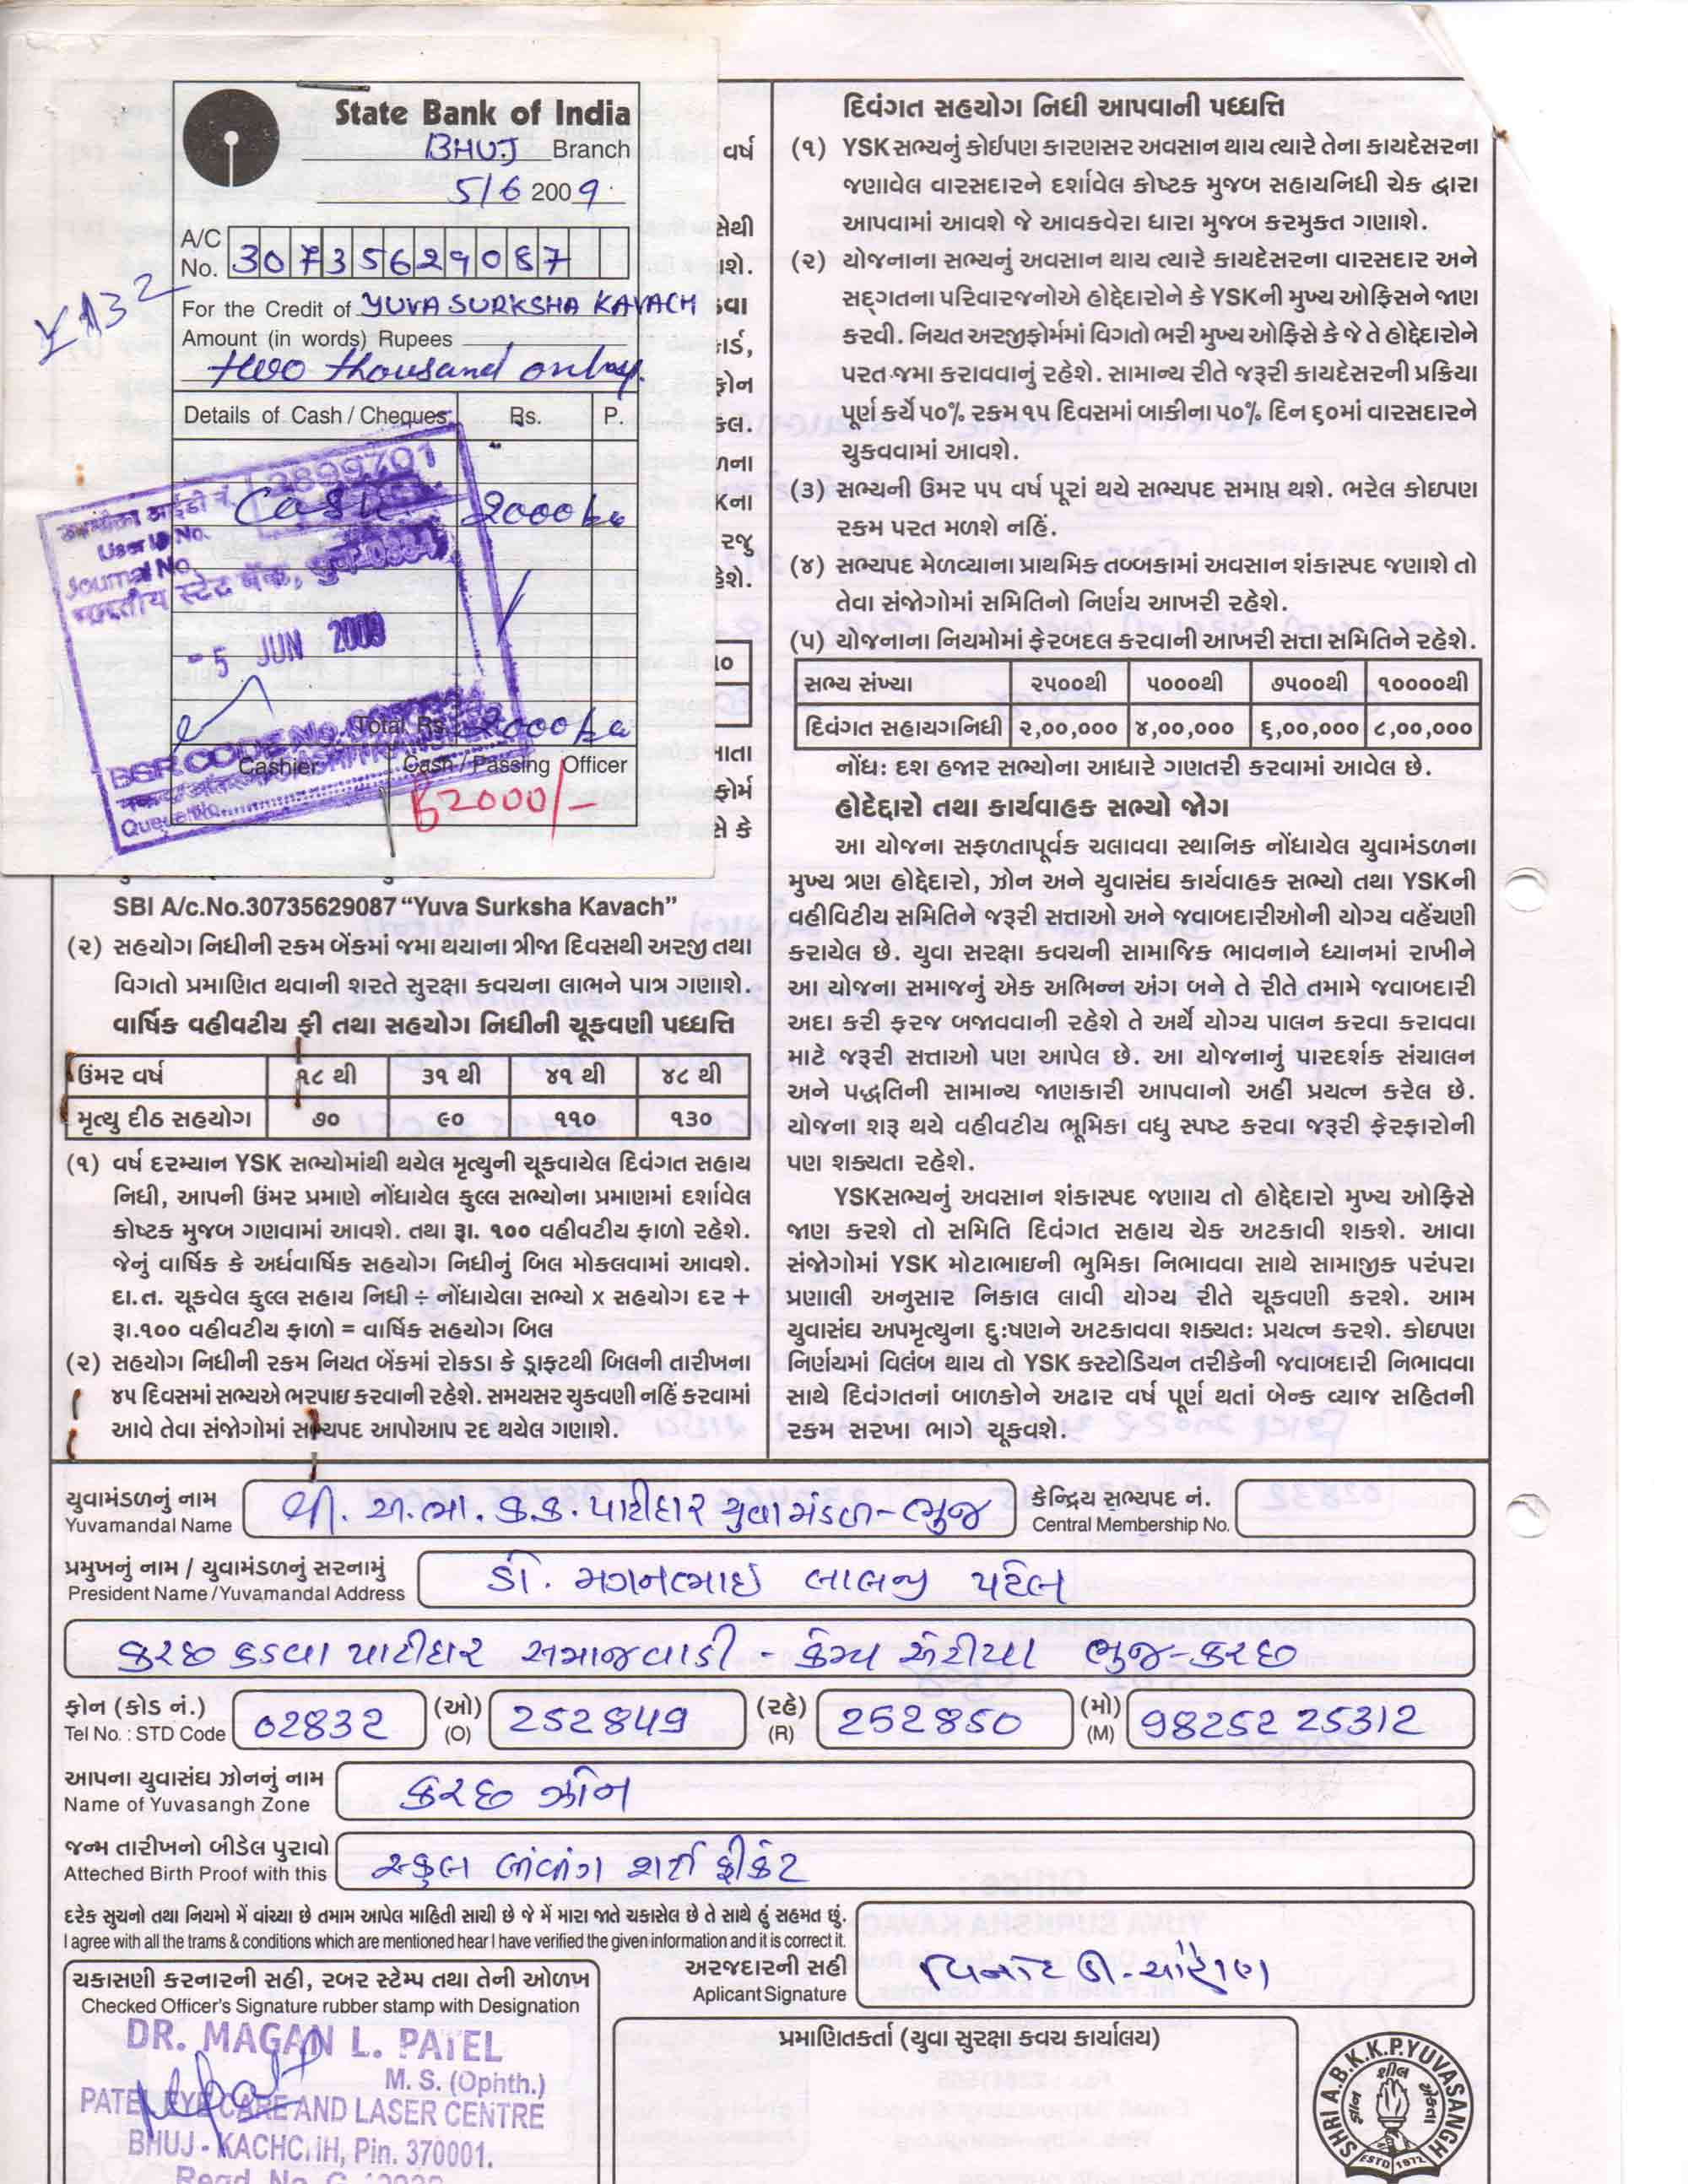 State Bank of India
BHUJ Branch
5/6 2009
A/C No. 30735629087
For the Credit of YUVA SURKSHA KAVACH
Amount (in words) Rupees
two thousand only.
Details of Cash / Cheques Rs. P.
12899701
User ID No.
Cash 2000
Journal No.
भारतीय स्टेट बैंक,
- 5 JUN 2009
Total Rs. 2000
Cashier Cash / Passing Officer
2000/-
Y132
વર્ષ
સેથી
કલ.
રજુ
SBI A/c.No.30735629087 “Yuva Surksha Kavach”
(૨) સહયોગ નિધીની રકમ બેંકમાં જમા થયાના ત્રીજા દિવસથી અરજી તથા
વિગતો પ્રમાણિત થવાની શરતે સુરક્ષા કવચના લાભને પાત્ર ગણાશે.
વાર્ષિક વહીવટીય ફી તથા સહયોગ નિધીની ચૂકવણી પધ્ધત્તિ
ઉંમર વર્ષ ૧૮ થી ૩૧ થી ૪૧ થી ૪૮ થી
મૃત્યુ દીઠ સહયોગ ૭૦ ૯૦ ૧૧૦ ૧૩૦
(૧) વર્ષ દરમ્યાન YSK સભ્યોમાંથી થયેલ મૃત્યુની ચૂકવાયેલ દિવંગત સહાય
નિધી, આપની ઉંમર પ્રમાણે નોંધાયેલ કુલ્લ સભ્યોના પ્રમાણમાં દર્શાવેલ
કોષ્ટક મુજબ ગણવામાં આવશે. તથા રૂા. ૧૦૦ વહીવટીય ફાળો રહેશે.
જેનું વાર્ષિક કે અર્ધવાર્ષિક સહયોગ નિધીનું બિલ મોકલવામાં આવશે.
દા.ત. ચૂકવેલ કુલ્લ સહાય નિધી ÷ નોંધાયેલા સભ્યો x સહયોગ દર +
રૂા.૧૦૦ વહીવટીય ફાળો = વાર્ષિક સહયોગ બિલ
(૨) સહયોગ નિધીની રકમ નિયત બેંકમાં રોકડા કે ડ્રાફ્ટથી બિલની તારીખના
૪૫ દિવસમાં સભ્યએ ભરપાઇ કરવાની રહેશે. સમયસર ચુકવણી નહિં કરવામાં
આવે તેવા સંજોગોમાં સભ્યપદ આપોઆપ રદ થયેલ ગણાશે.
દિવંગત સહયોગ નિધી આપવાની પધ્ધત્તિ
(૧) YSK સભ્યનું કોઈપણ કારણસર અવસાન થાય ત્યારે તેના કાયદેસરના
જણાવેલ વારસદારને દર્શાવેલ કોષ્ટક મુજબ સહાયનિધી ચેક દ્વારા
આપવામાં આવશે જે આવકવેરા ધારા મુજબ કરમુક્ત ગણાશે.
(૨) યોજનાના સભ્યનું અવસાન થાય ત્યારે કાયદેસરના વારસદાર અને
સદ્ગતના પરિવારજનોએ હોદ્દેદારોને કે YSKની મુખ્ય ઓફિસને જાણ
કરવી. નિયત અરજીફોર્મમાં વિગતો ભરી મુખ્ય ઓફિસે કે જે તે હોદ્દેદારોને
પરત જમા કરાવવાનું રહેશે. સામાન્ય રીતે જરૂરી કાયદેસરની પ્રક્રિયા
પૂર્ણ કર્યે ૫૦% રકમ ૧૫ દિવસમાં બાકીના ૫૦% દિન ૬૦માં વારસદારને
ચુકવવામાં આવશે.
(૩) સભ્યની ઉંમર ૫૫ વર્ષ પૂરાં થયે સભ્યપદ સમાપ્ત થશે. ભરેલ કોઇપણ
રકમ પરત મળશે નહિં.
(૪) સભ્યપદ મેળવ્યાના પ્રાથમિક તબ્બકામાં અવસાન શંકાસ્પદ જણાશે તો
તેવા સંજોગોમાં સમિતિનો નિર્ણય આખરી રહેશે.
(૫) યોજનાના નિયમોમાં ફેરબદલ કરવાની આખરી સત્તા સમિતિને રહેશે.
સભ્ય સંખ્યા ૨૫૦૦થી ૫૦૦૦થી ૭૫૦૦થી ૧૦૦૦૦થી
દિવંગત સહાયગનિધી ૨,૦૦,૦૦૦ ૪,૦૦,૦૦૦ ૬,૦૦,૦૦૦ ૮,૦૦,૦૦૦
નોંધ: દશ હજાર સભ્યોના આધારે ગણતરી કરવામાં આવેલ છે.
હોદેદ્દારો તથા કાર્યવાહક સભ્યો જોગ
આ યોજના સફળતાપૂર્વક ચલાવવા સ્થાનિક નોંધાયેલ યુવામંડળના
મુખ્ય ત્રણ હોદ્દેદારો, ઝોન અને યુવાસંઘ કાર્યવાહક સભ્યો તથા YSKની
વહીવિટીય સમિતિને જરૂરી સત્તાઓ અને જવાબદારીઓની યોગ્ય વહેંચણી
કરાયેલ છે. યુવા સરક્ષા કવચની સામાજિક ભાવનાને ધ્યાનમાં રાખીને
આ યોજના સમાજનું એક અભિન્ન અંગ બને તે રીતે તમામે જવાબદારી
અદા કરી ફરજ બજાવવાની રહેશે તે અર્થે યોગ્ય પાલન કરવા કરાવવા
માટે જરૂરી સત્તાઓ પણ આપેલ છે. આ યોજનાનું પારદર્શક સંચાલન
અને પદ્ધતિની સામાન્ય જાણકારી આપવાનો અહીં પ્રયત્ન કરેલ છે.
યોજના શરૂ થયે વહીવટીય ભૂમિકા વધુ સ્પષ્ટ કરવા જરૂરી ફેરફારોની
પણ શક્યતા રહેશે.
YSKસભ્યનું અવસાન શંકાસ્પદ જણાય તો હોદ્દેદારો મુખ્ય ઓફિસે
જાણ કરશે તો સમિતિ દિવંગત સહાય ચેક અટકાવી શકશે. આવા
સંજોગોમાં YSK મોટાભાઇની ભુમિકા નિભાવવા સાથે સામાજીક પરંપરા
પ્રણાલી અનુસાર નિકાલ લાવી યોગ્ય રીતે ચૂકવણી કરશે. આમ
યુવાસંઘ અપમૃત્યુના દુઃષણને અટકાવવા શક્યતઃ પ્રયત્ન કરશે. કોઇપણ
નિર્ણયમાં વિલંબ થાય તો YSK કસ્ટોડિયન તરીકેની જવાબદારી નિભાવવા
સાથે દિવંગતનાં બાળકોને અઢાર વર્ષ પૂર્ણ થતાં બેન્ક વ્યાજ સહિતની
રકમ સરખા ભાગે ચૂકવશે.
યુવામંડળનું નામ શ્રી. અ.ભા. ક.ક. પાટીદાર યુવા મંડળ-ભુજ કેન્દ્રિય સભ્યપદ નં.
Yuvamandal Name Central Membership No.
પ્રમુખનું નામ / યુવામંડળનું સરનામું ડો. મગનભાઇ લાલજી પટેલ
President Name / Yuvamandal Address
કચ્છ કડવા પાટીદાર સમાજવાડી - કેમ્પ એરીયા ભુજ-કચ્છ
ફોન (કોડ નં.) 02832 (ઓ) 252849 (રહે) 252850 (મો) 98252 25312
Tel No. : STD Code (O) (R) (M)
આપના યુવાસંઘ ઝોનનું નામ કચ્છ ઝોન
Name of Yuvasangh Zone
જન્મ તારીખનો બીડેલ પુરાવો સ્કુલ લીવીંગ સર્ટીફીકેટ
Atteched Birth Proof with this
દરેક સુચનો તથા નિયમો મેં વાંચ્યા છે તમામ આપેલ માહિતી સાચી છે જે મેં મારા જાતે ચકાસેલ છે તે સાથે હું સહમત છું.
I agree with all the trams & conditions which are mentioned hear I have verified the given information and it is correct it.
અરજદારની સહી વિનોદ ડી. ચૌહાણ
Aplicant Signature
ચકાસણી કરનારની સહી, રબર સ્ટેમ્પ તથા તેની ઓળખ
Checked Officer's Signature rubber stamp with Designation
DR. MAGAN L. PATEL
M. S. (Ophth.)
PATEL EYE CARE AND LASER CENTRE
BHUJ - KACHCHH, Pin. 370001.
પ્રમાણિતકર્તા (યુવા સુરક્ષા કવચ કાર્યાલય)
SHRI A.B.K.K.P. YUVASANGH
ESTD 1972